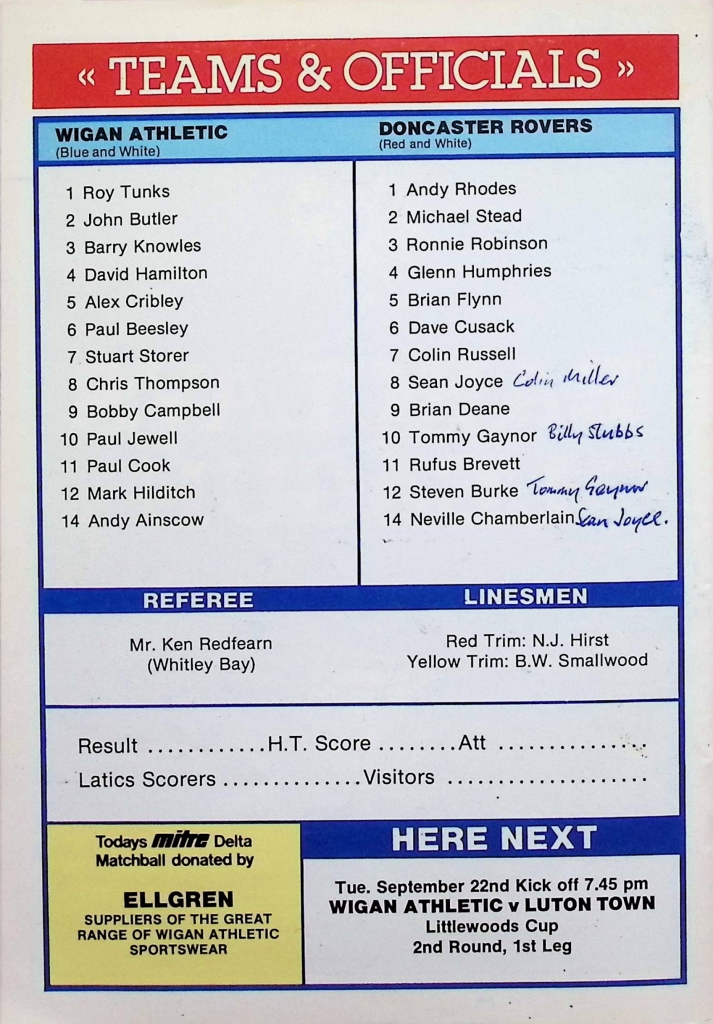 « TEAMS & OFFICIALS »
WIGAN ATHLETIC
(Blue and White)
1 Roy Tunks
2 John Butler
3 Barry Knowles
4 David Hamilton
5 Alex Cribley
6 Paul Beesley
7 Stuart Storer
8 Chris Thompson
9 Bobby Campbell
10 Paul Jewell
11 Paul Cook
12 Mark Hilditch
14 Andy Ainscow
DONCASTER ROVERS
(Red and White)
1 Andy Rhodes
2 Michael Stead
3 Ronnie Robinson
4 Glenn Humphries
5 Brian Flynn
6 Dave Cusack
7 Colin Russell
8 Sean Joyce Colin Miller
9 Brian Deane
10 Tommy Gaynor Billy Stubbs
11 Rufus Brevett
12 Steven Burke Tommy Gaynor
14 Neville Chamberlain Sean Joyce.
REFEREE
Mr. Ken Redfearn
(Whitley Bay)
LINESMEN
Red Trim: N.J. Hirst
Yellow Trim: B.W. Smallwood
Result ............H.T. Score ........Att ...............
Latics Scorers ..............Visitors ....................
Todays mitre Delta
Matchball donated by
ELLGREN
SUPPLIERS OF THE GREAT
RANGE OF WIGAN ATHLETIC
SPORTSWEAR
HERE NEXT
Tue. September 22nd Kick off 7.45 pm
WIGAN ATHLETIC v LUTON TOWN
Littlewoods Cup
2nd Round, 1st Leg